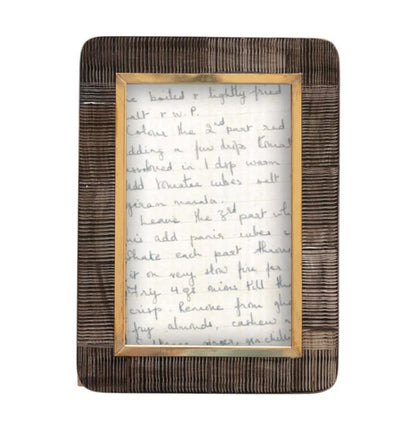 boiled & lightly fried
salt & w.P.
Colour the 2nd part red
adding a few drops
dissolved in 1 dsp warm
add tomatoe cubes salt
garam masala.
Leave the 3rd part
add panir cubes &
Shake each part
it on very slow fire for
Fry 4 ozs onions till
crisp. Remove from
fry almonds, cashew